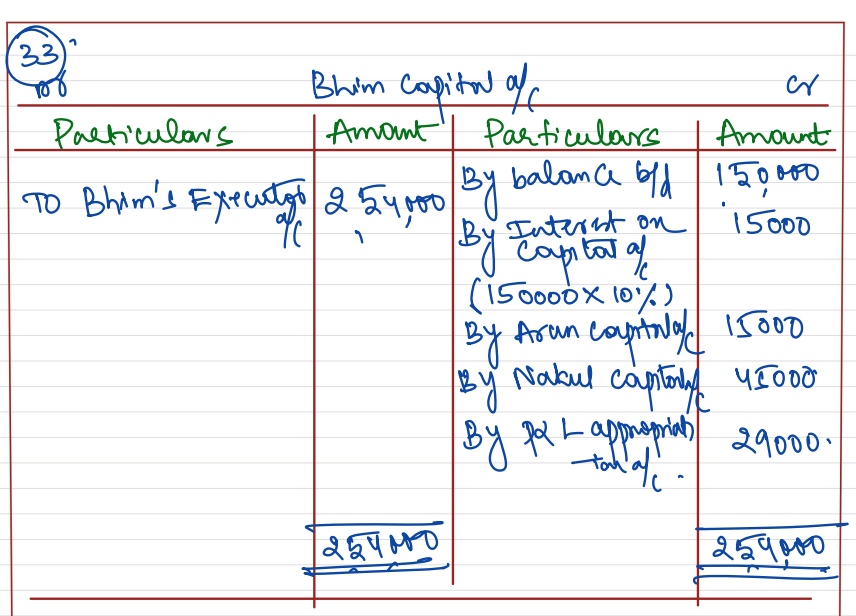 33
Dr Bhim Capital a/c Cr
Particulars Amount Particulars Amount
To Bhim's Executor a/c 2,54,000
By balance b/d 1,50,000
By Interest on Capital a/c 15000
(150000 × 10%)
By Arun Capital a/c 15000
By Nakul Capital a/c 45000
By P & L appropria
-tion a/c. 29000.
254000 254,000